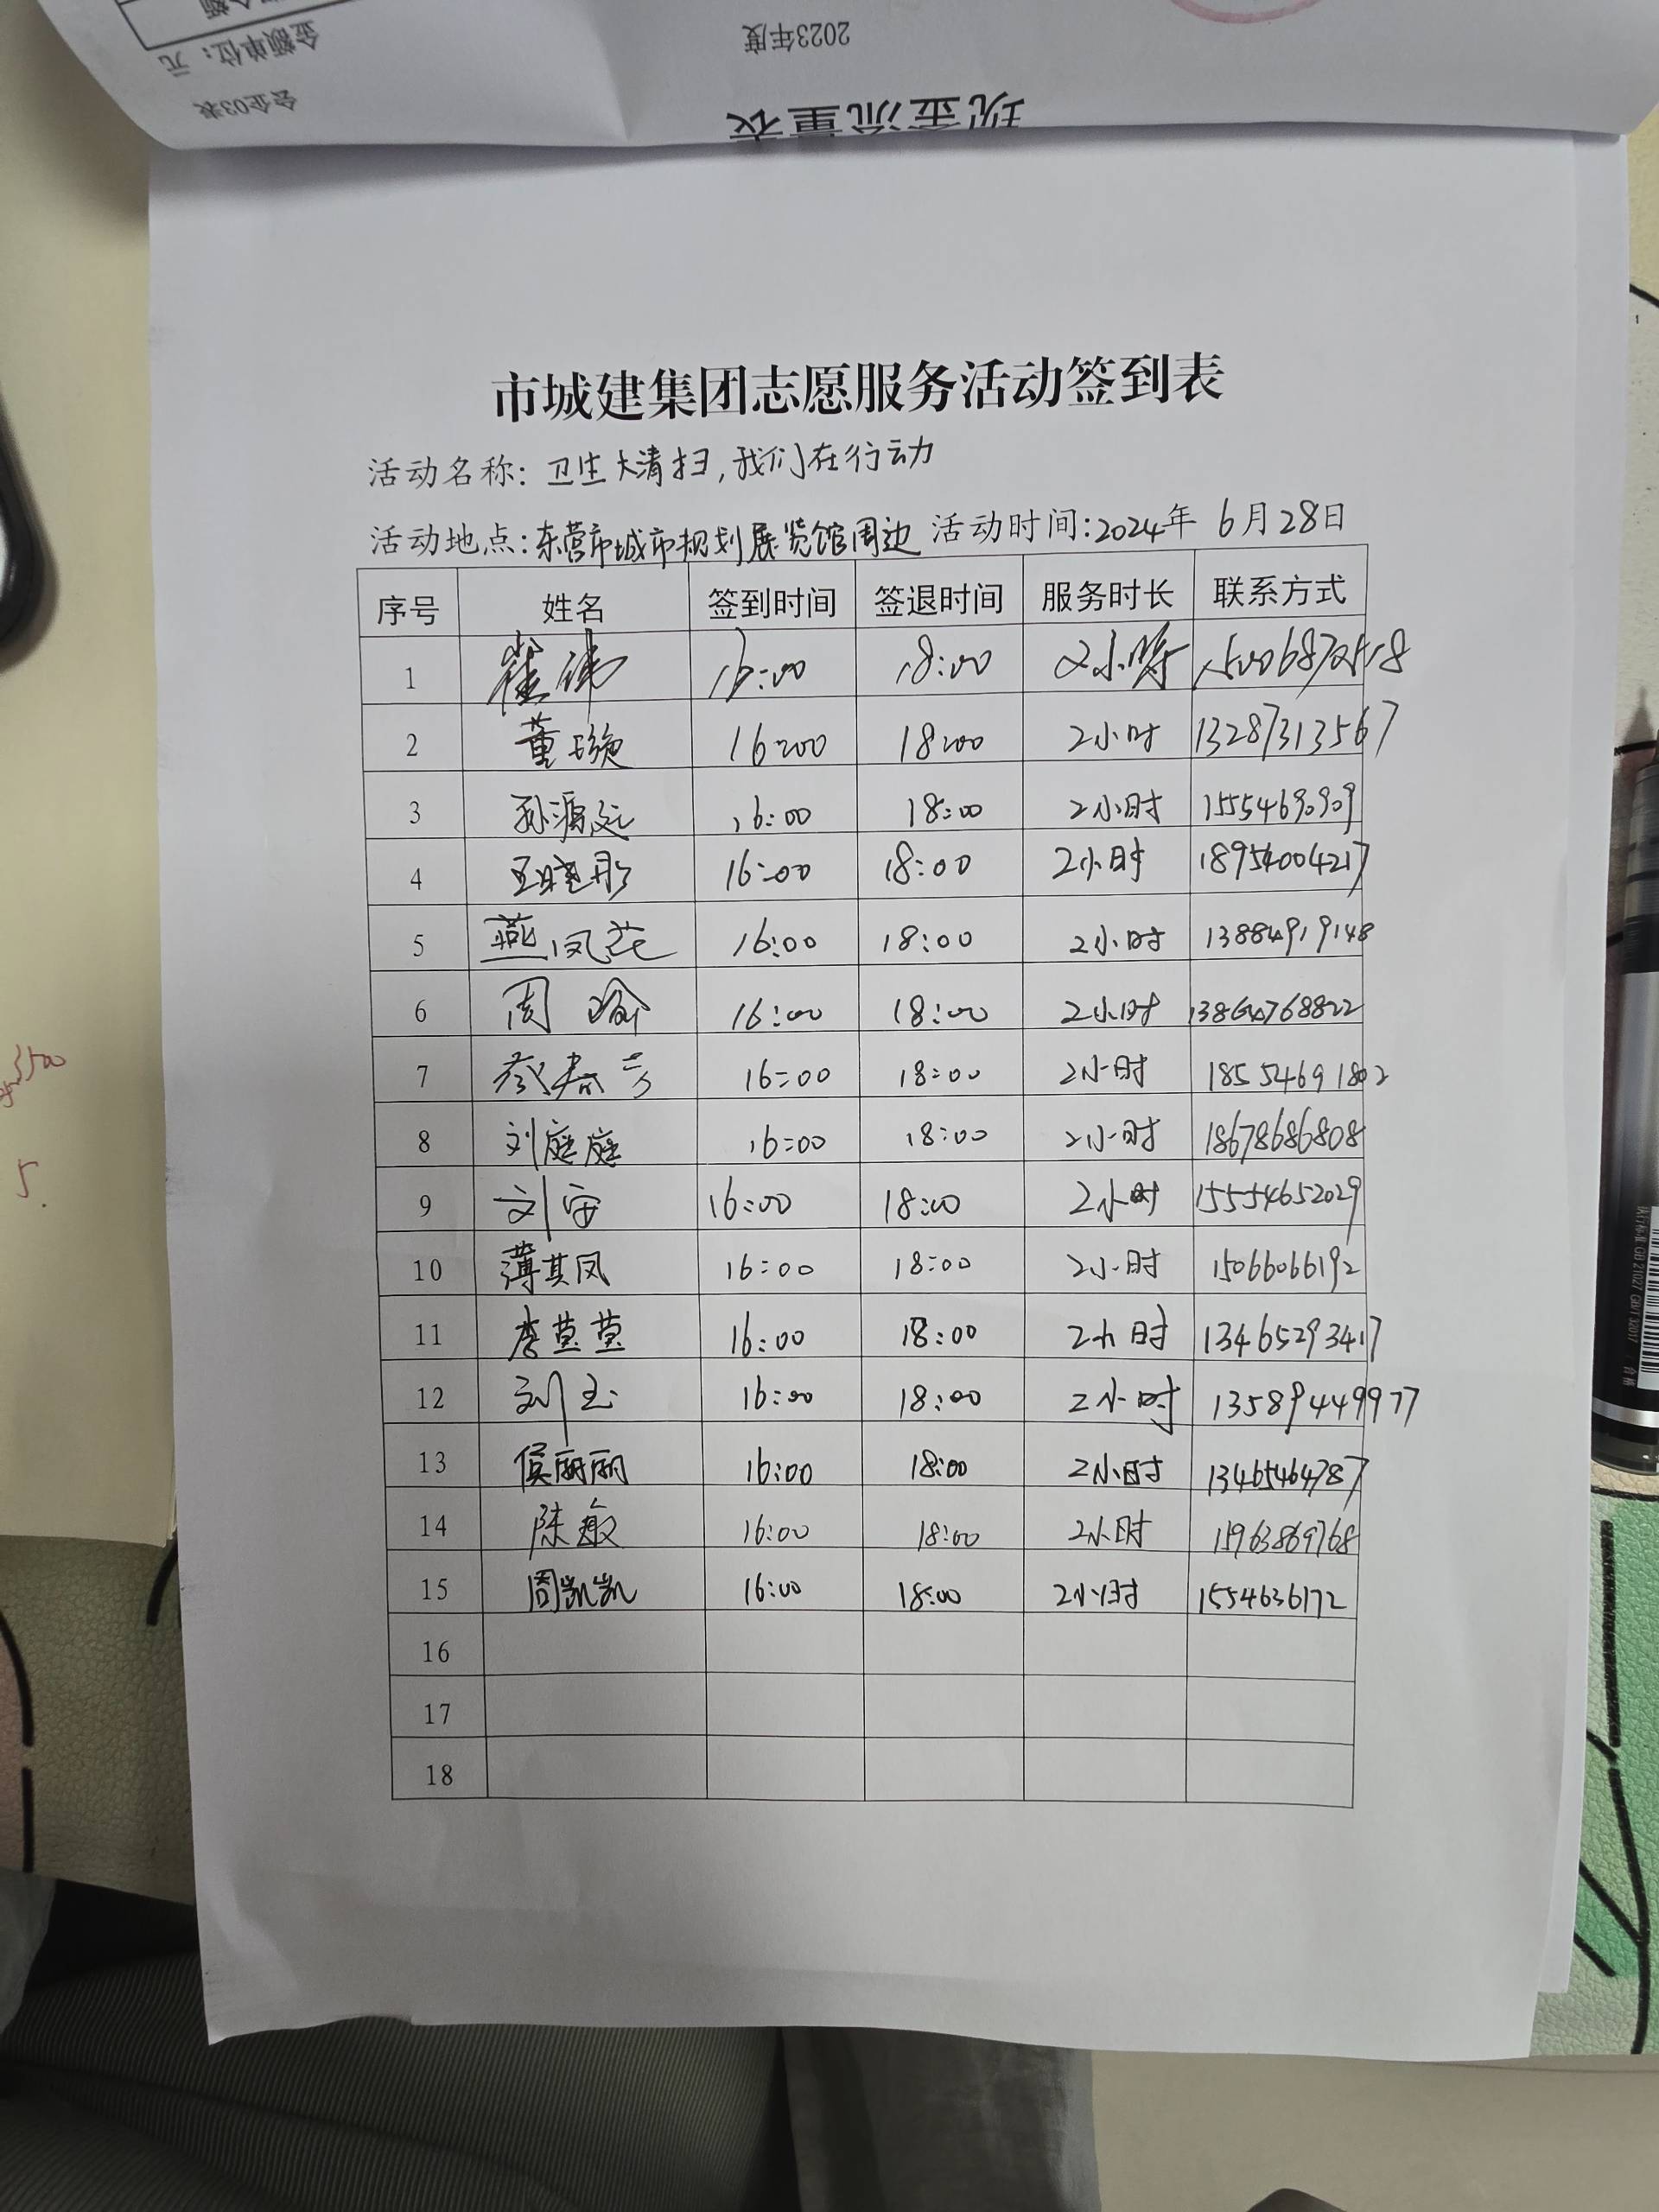 金额单位：元
会企03表
2023年度
现金流量表
市城建集团志愿服务活动签到表
活动名称：卫生大清扫，我们在行动
活动地点：东营市城市规划展览馆周边 活动时间：2024年 6月28日
序号 姓名 签到时间 签退时间 服务时长 联系方式
1 崔伟 16:00 18:00 2小时
2 董璇 16:00 18:00 2小时 13287313567
3 孙源远 16:00 18:00 2小时 15554690909
4 王晓彤 16:00 18:00 2小时 18954004217
5 燕凤花 16:00 18:00 2小时 13884919148
6 周瑜 16:00 18:00 2小时 13864768822
7 蔡春芳 16:00 18:00 2小时 18554691802
8 刘庭庭 16:00 18:00 2小时 18678686808
9 刘安 16:00 18:00 2小时 15554652029
10 薄其凤 16:00 18:00 2小时 15066066192
11 李莫莫 16:00 18:00 2小时 13465293417
12 刘玉 16:00 18:00 2小时 13589449977
13 侯丽丽 16:00 18:00 2小时 13465464787
14 陈敏 16:00 18:00 2小时 15963869768
15 周凯凯 16:00 18:00 2小时 1554636172
16
17
18
3500
5.